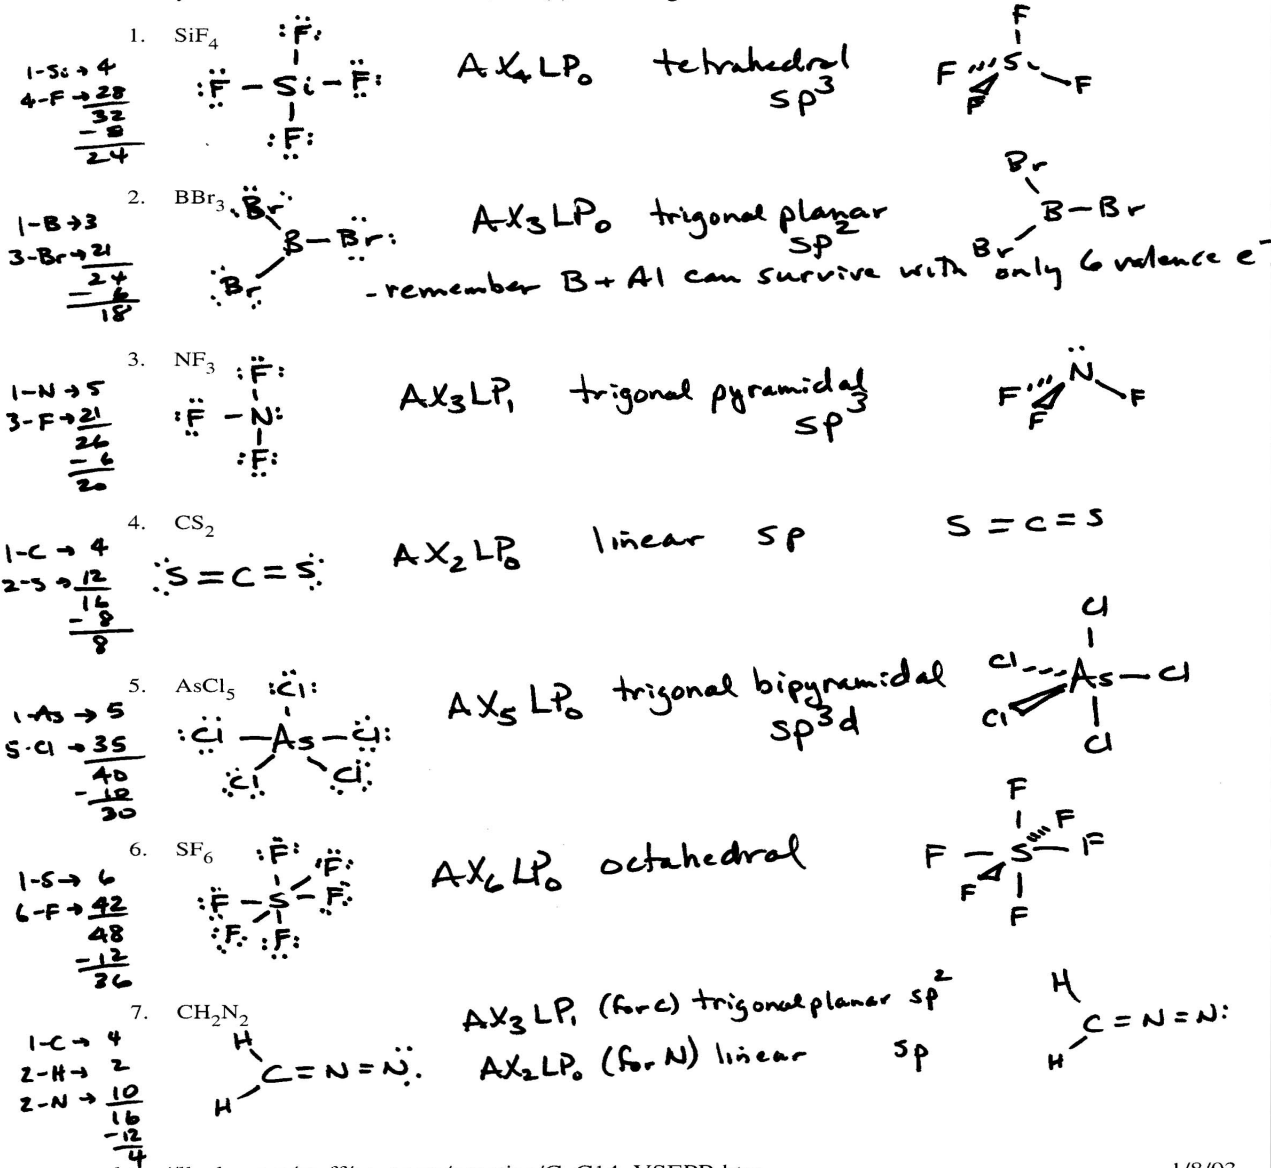 1. SiF4
1-Si → 4
4-F → 28
32
- 8
24
:F:
:F - Si - F:
:F:
AX4LP0 tetrahedral
sp3
F
F S F
F
2. BBr3
1-B → 3
3-Br → 21
24
- 6
18
Br
B - Br:
:Br
AX3LP0 trigonal planar
sp2
- remember B + Al can survive with only 6 valence e-
Br
B - Br
Br
3. NF3
1-N → 5
3-F → 21
26
- 6
20
:F:
:F - N:
:F:
AX3LP1 trigonal pyramidal
sp3
F N F
F
4. CS2
1-C → 4
2-S → 12
16
- 8
8
:S = C = S:
AX2LP0 linear sp
S = C = S
5. AsCl5
1-As → 5
5-Cl → 35
40
- 10
30
:Cl:
:Cl - As - Cl:
:Cl Cl:
AX5LP0 trigonal bipyramidal
sp3d
Cl
Cl As - Cl
Cl
Cl
6. SF6
1-S → 6
6-F → 42
48
- 12
36
:F: F:
:F - S - F:
:F: :F:
AX6LP0 octahedral
F
F
F - S - F
F
F
7. CH2N2
1-C → 4
2-H → 2
2-N → 10
16
-12
4
H
C = N = N:
H
AX3LP1 (for C) trigonal planar sp2
AX2LP0 (for N) linear sp
H
C = N = N:
H
1/8/03